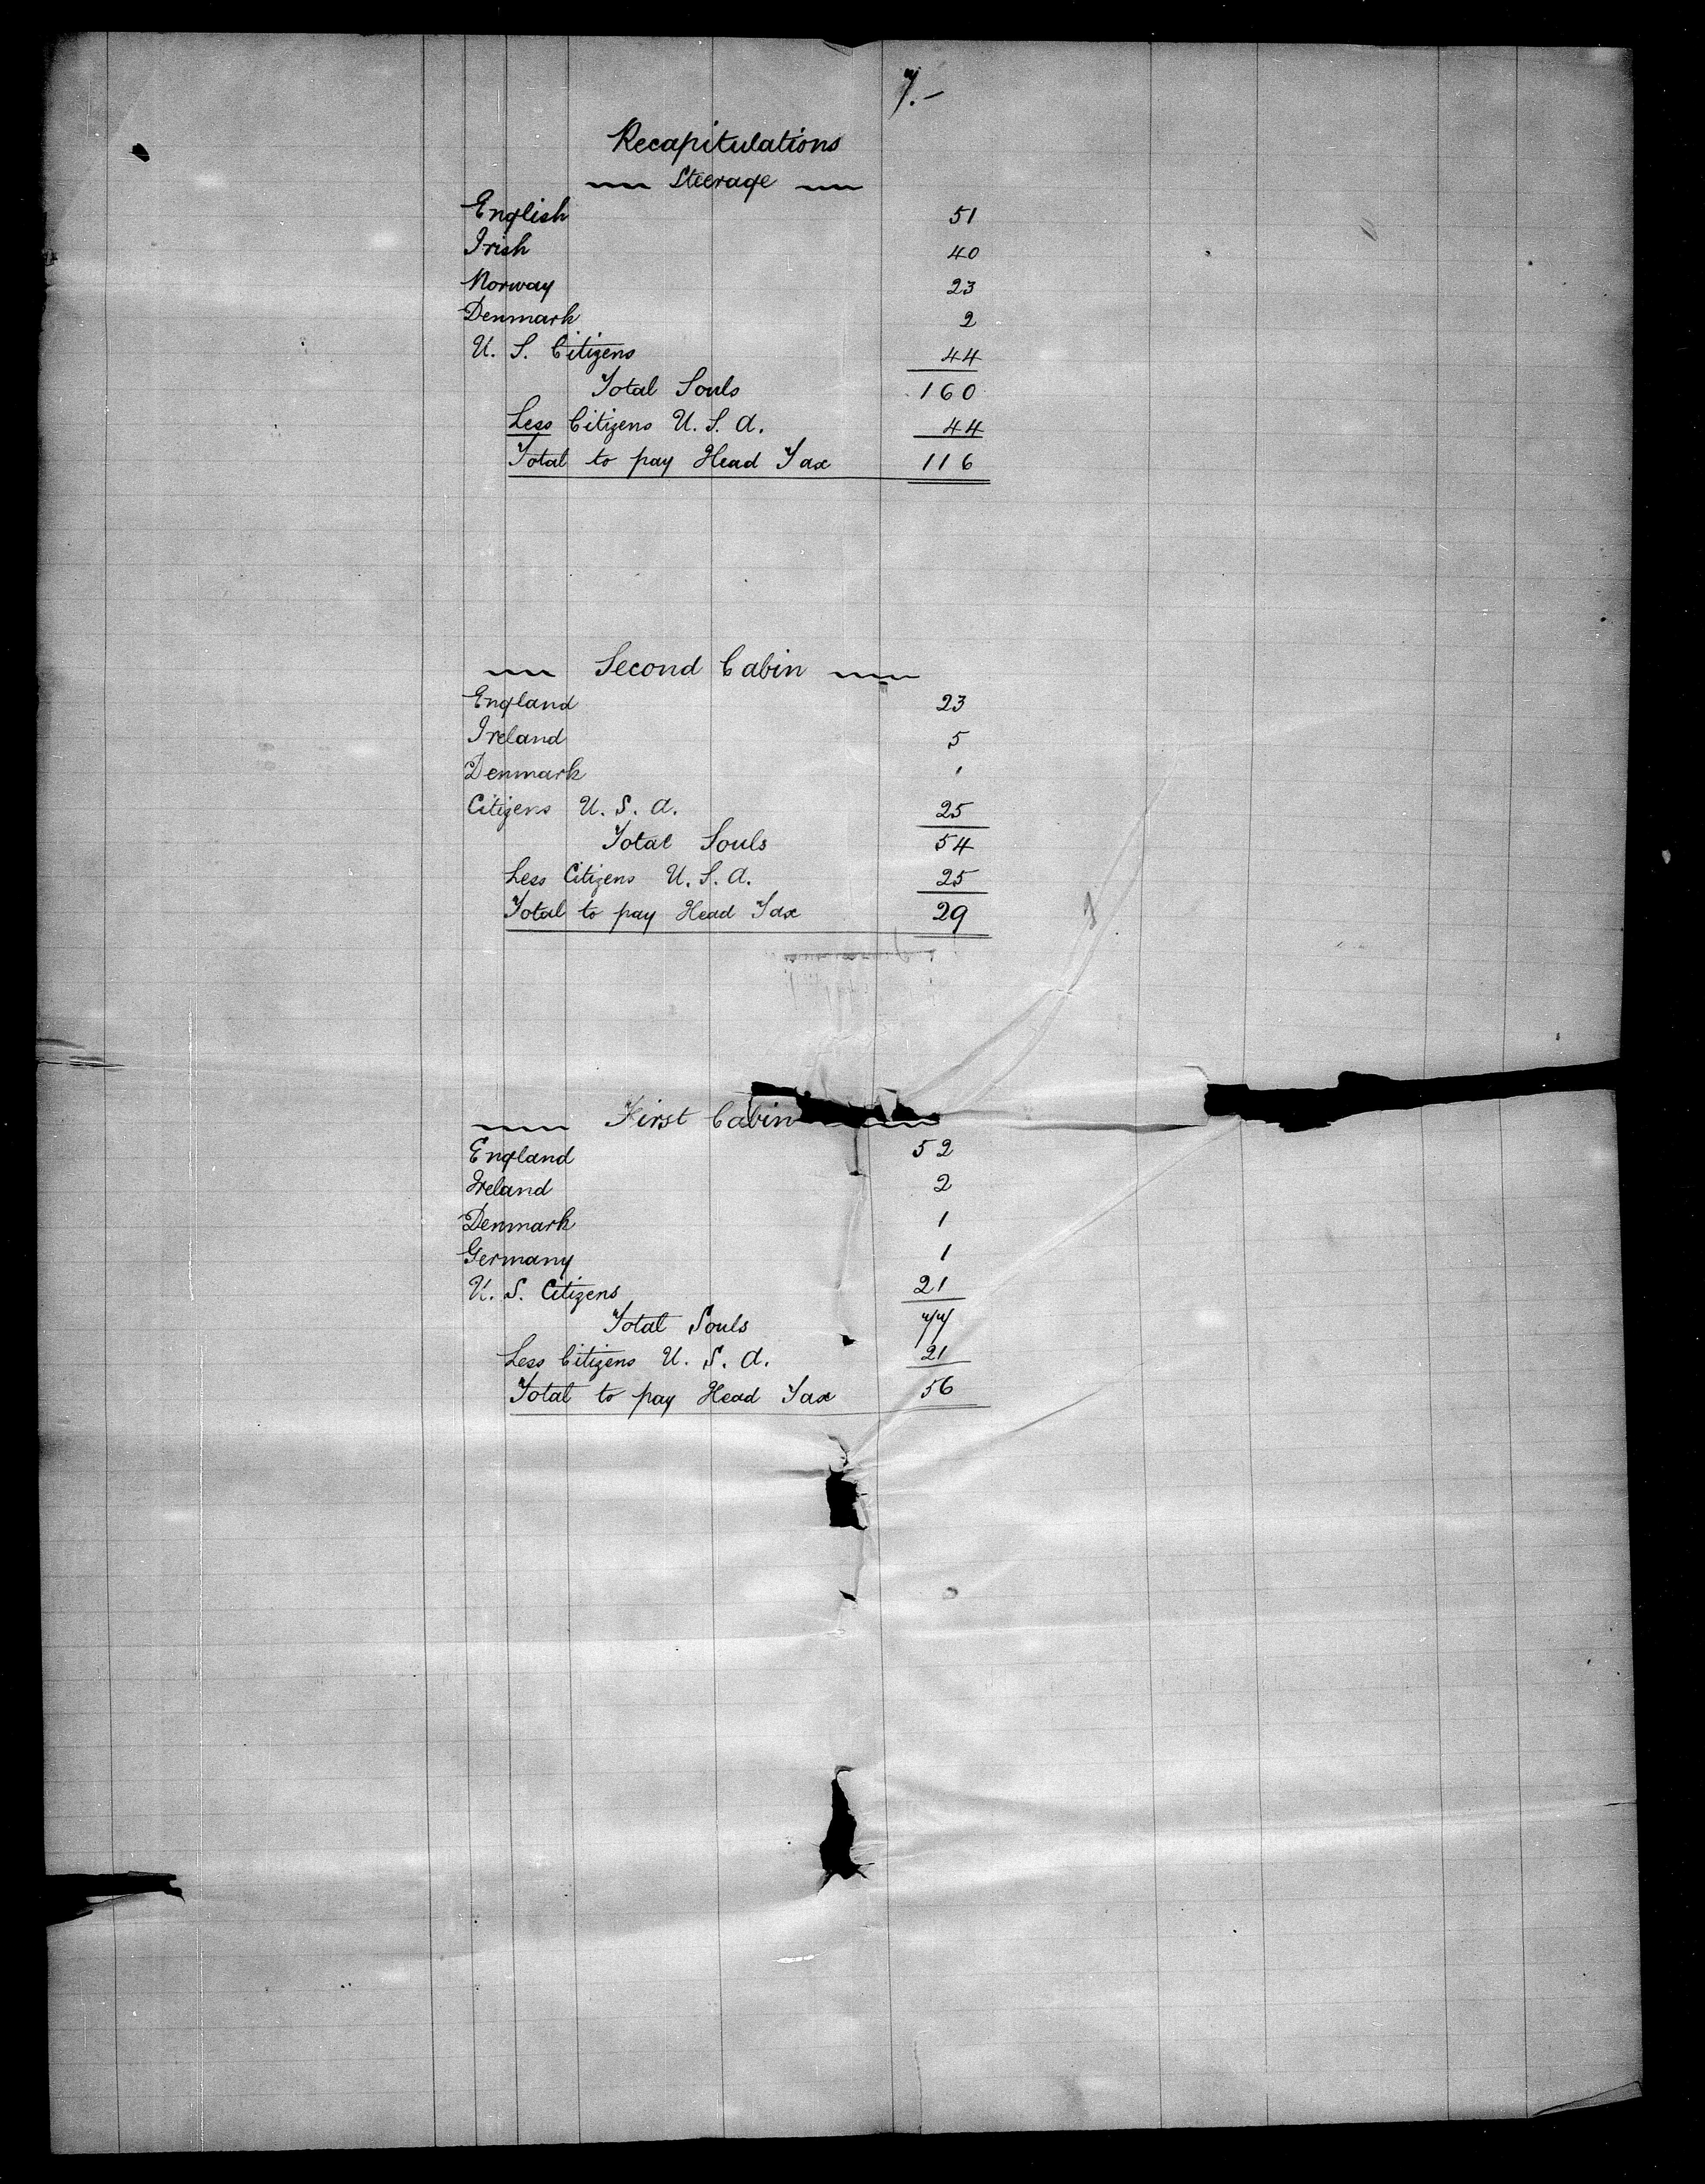 7.-
Recapitulations
Steerage
English 51
Irish 40
Norway 23
Denmark 2
U. S. Citizens 44
Total Souls 160
Less Citizens U. S. A. 44
Total to pay Head Tax 116
Second Cabin
England 23
Ireland 5
Denmark 1
Citizens U. S. A. 25
Total Souls 54
Less Citizens U. S. A. 25
Total to pay Head Tax 29
First Cabin
England 52
Ireland 2
Denmark 1
Germany 1
U. S. Citizens 21
Total Souls 77
Less Citizens U. S. A. 21
Total to pay Head Tax 56